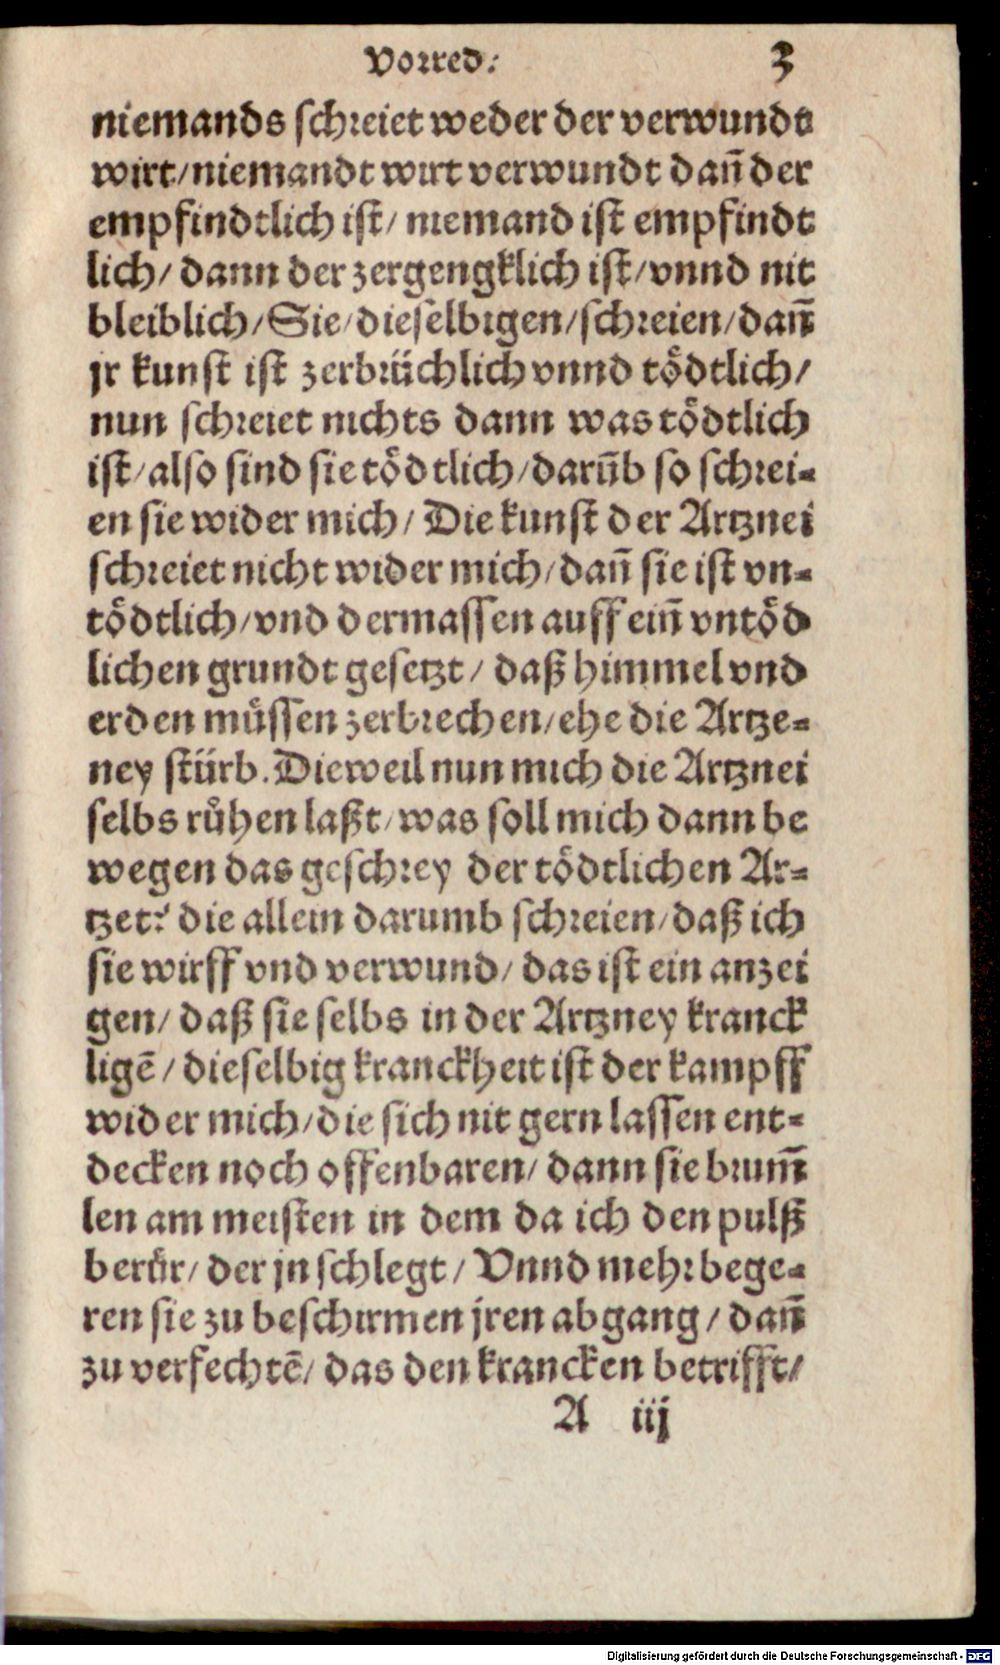 Vorred.
3
niemands schreiet weder der verwundt
wirt/niemandt wirt verwundt dañ der
empfindtlich ist/ niemand ist empfindt
lich/ dann der zergengklich ist/vnnd nit
bleiblich/Sie/dieselbigen/schreien/dañ
jr kunst ist zerbrüchlich vnnd tödtlich/
nun schreiet nichts dann was tödtlich
ist/also sind sie tödtlich/darūb so schrei-
en sie wider mich/ Die kunst der Artznei
schreiet nicht wider mich/dañ sie ist vn-
tödtlich/vnd dermassen auff eiñ vntöd
lichen grundt gesetzt/ daß himmel vnd
erden müssen zerbrechen/ehe die Artze-
ney stürb. Dieweil nun mich die Artznei
selbs růhen laßt/was soll mich dann be
wegen das geschrey der tödtlichen Ar-
tzet? die allein darumb schreien/daß ich
sie wirff vnd verwund/ das ist ein anzei
gen/ daß sie selbs in der Artzney kranck
ligē/ dieselbig kranckheit ist der kampff
wider mich/die sich nit gern lassen ent-
decken noch offenbaren/ dann sie brum̃
len am meisten in dem da ich den pulß
berür/ der jn schlegt/ Vnnd mehr bege-
ren sie zu beschirmen jren abgang/ dañ
zu verfechtē/ das den krancken betrifft/
A iij
Digitalisierung gefördert durch die Deutsche Forschungsgemeinschaft - DFG